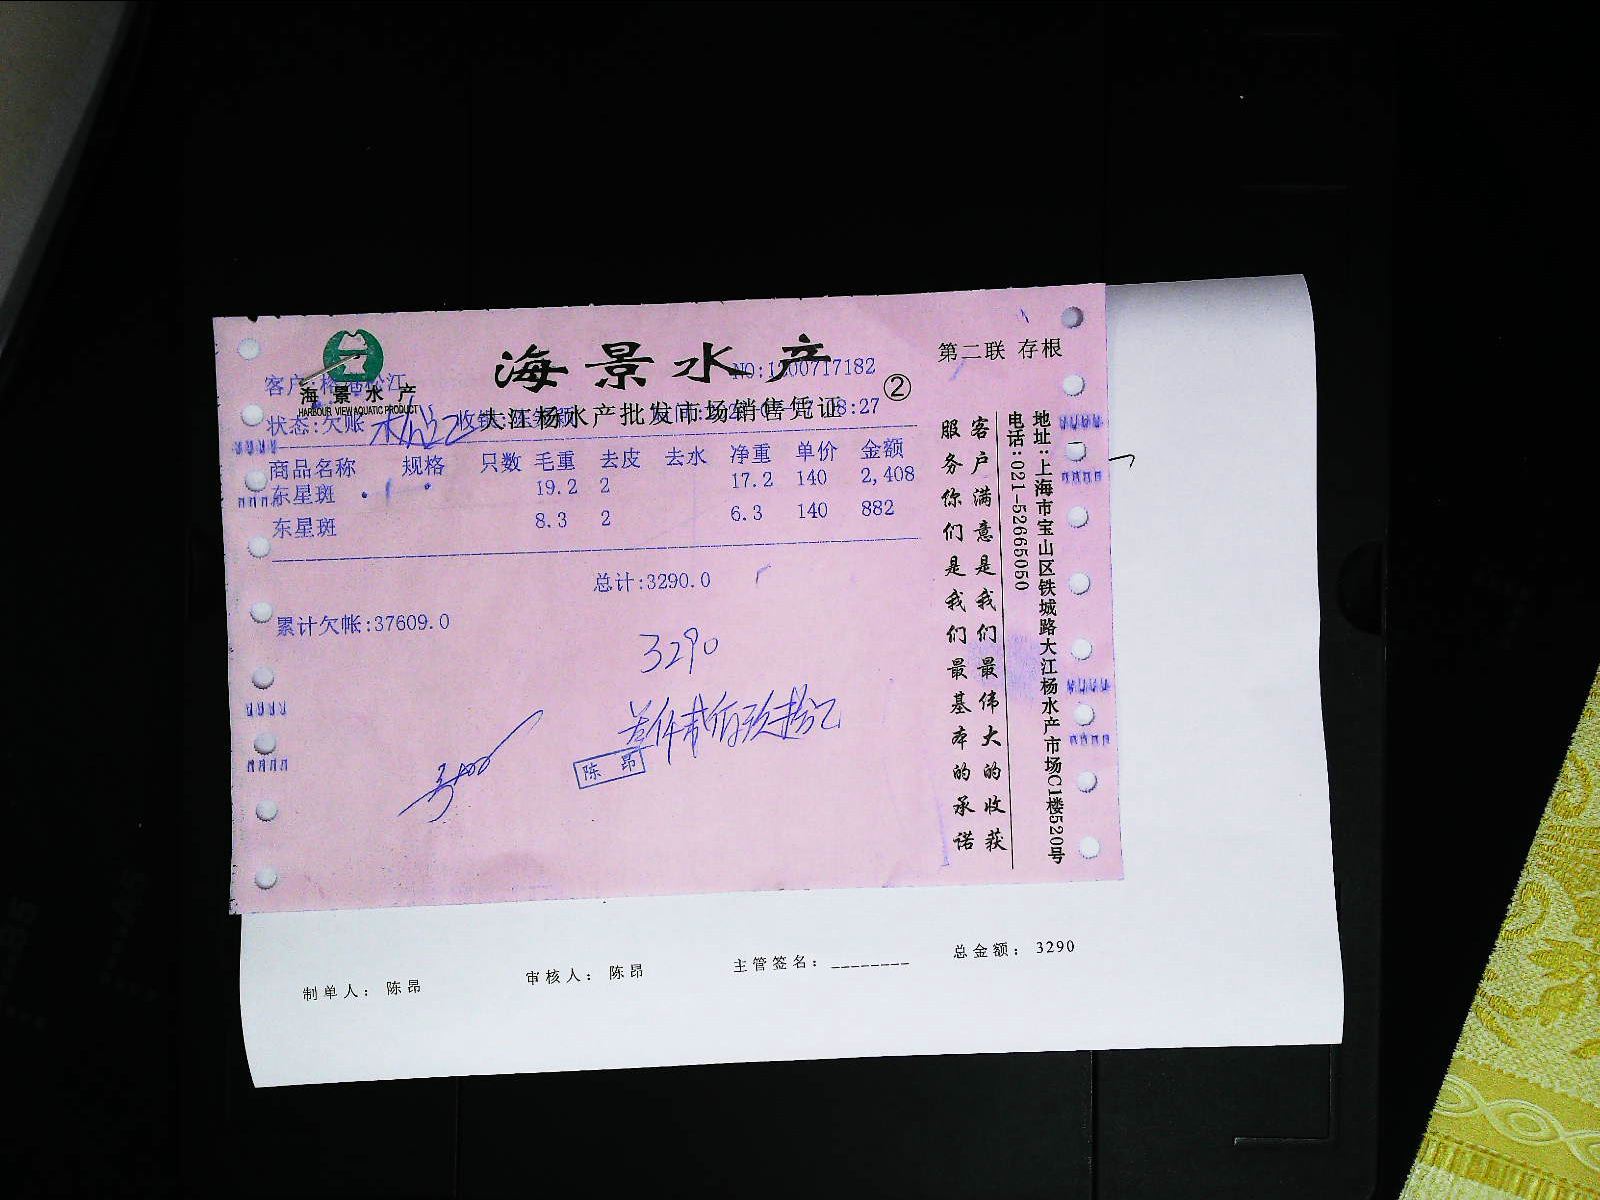 海景水产
第二联 存根
NO:1200717182
②
客户:格港松江
海景水产
HARBOUR VIEW AQUATIC PRODUCT
大江杨水产批发市场销售凭证
状态:欠账
商品名称 规格 只数 毛重 去皮 去水 净重 单价 金额
东星斑 19.2 2 17.2 140 2,408
东星斑 8.3 2 6.3 140 882
总计:3290.0
累计欠帐:37609.0
3290
陈 昂
客户满意是我们最伟大的收获
服务你们是我们最基本的承诺
地址:上海市宝山区铁城路大江杨水产市场C1楼520号
电话:021-52665050
制单人: 陈昂 审核人: 陈昂 主管签名: ________ 总金额: 3290